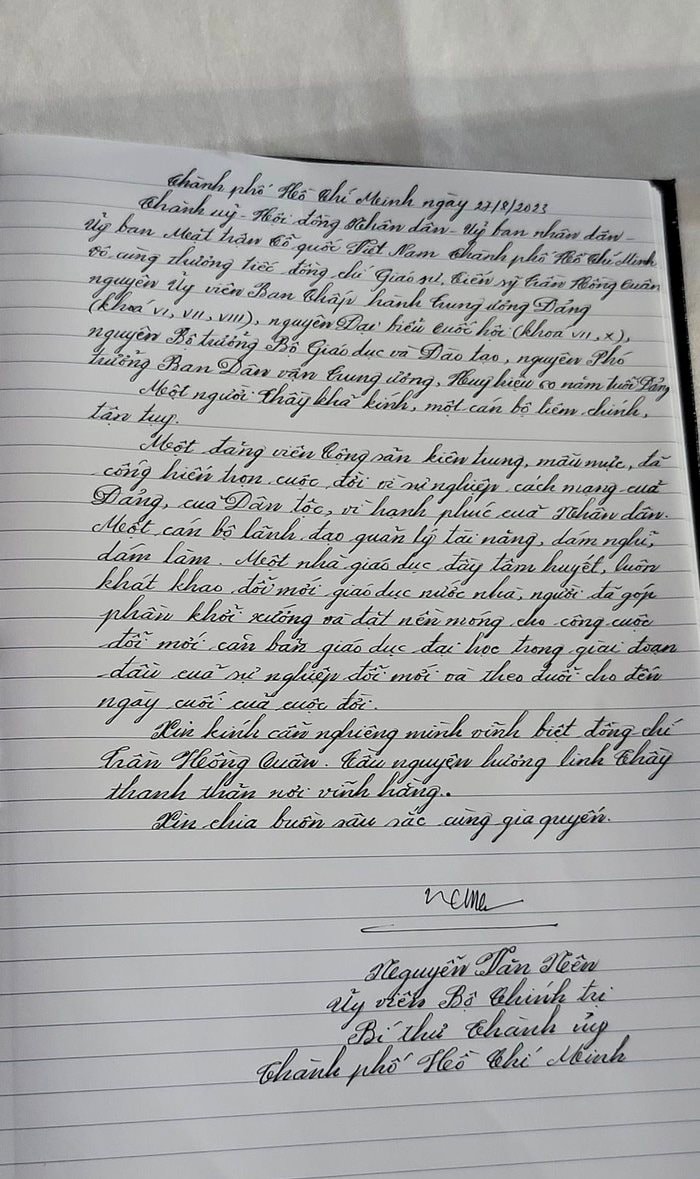 Thành phố Hồ Chí Minh ngày 27/8/2023
Thành uỷ - Hội đồng Nhân dân - Uỷ ban nhân dân -
Uỷ ban Mặt trận Tổ quốc Việt Nam Thành phố Hồ Chí Minh
vô cùng thương tiếc đồng chí Giáo sư, Tiến sỹ Trần Hồng Quân
nguyên Uỷ viên Ban Chấp hành Trung ương Đảng
(khoá VI, VII, VIII), nguyên Đại biểu Quốc hội (khoá VII, X),
nguyên Bộ trưởng Bộ Giáo dục và Đào tạo, nguyên Phó
trưởng Ban Dân vận Trung ương, Huy hiệu 60 năm tuổi Đảng
Một người Thầy khả kính, một cán bộ liêm chính,
tận tụy.
Một đảng viên Cộng sản kiên trung, mẫu mực, đã
cống hiến trọn cuộc đời vì sự nghiệp cách mạng của
Đảng, của Dân tộc, vì hạnh phúc của Nhân dân.
Một cán bộ lãnh đạo quản lý tài năng, dám nghĩ,
dám làm. Một nhà giáo dục đầy tâm huyết, luôn
khát khao đổi mới giáo dục nước nhà, người đã góp
phần khởi xướng và đặt nền móng cho công cuộc
đổi mới căn bản giáo dục đại học trong giai đoạn
đầu của sự nghiệp đổi mới và theo đuổi cho đến
ngày cuối của cuộc đời.
Xin kính cẩn nghiêng mình vĩnh biệt đồng chí
Trần Hồng Quân. Cầu nguyện hương linh Thầy
thanh thản nơi vĩnh hằng.
Xin chia buồn sâu sắc cùng gia quyến.
Nguyễn Văn Nên
Ủy viên Bộ Chính trị
Bí thư Thành ủy
Thành phố Hồ Chí Minh